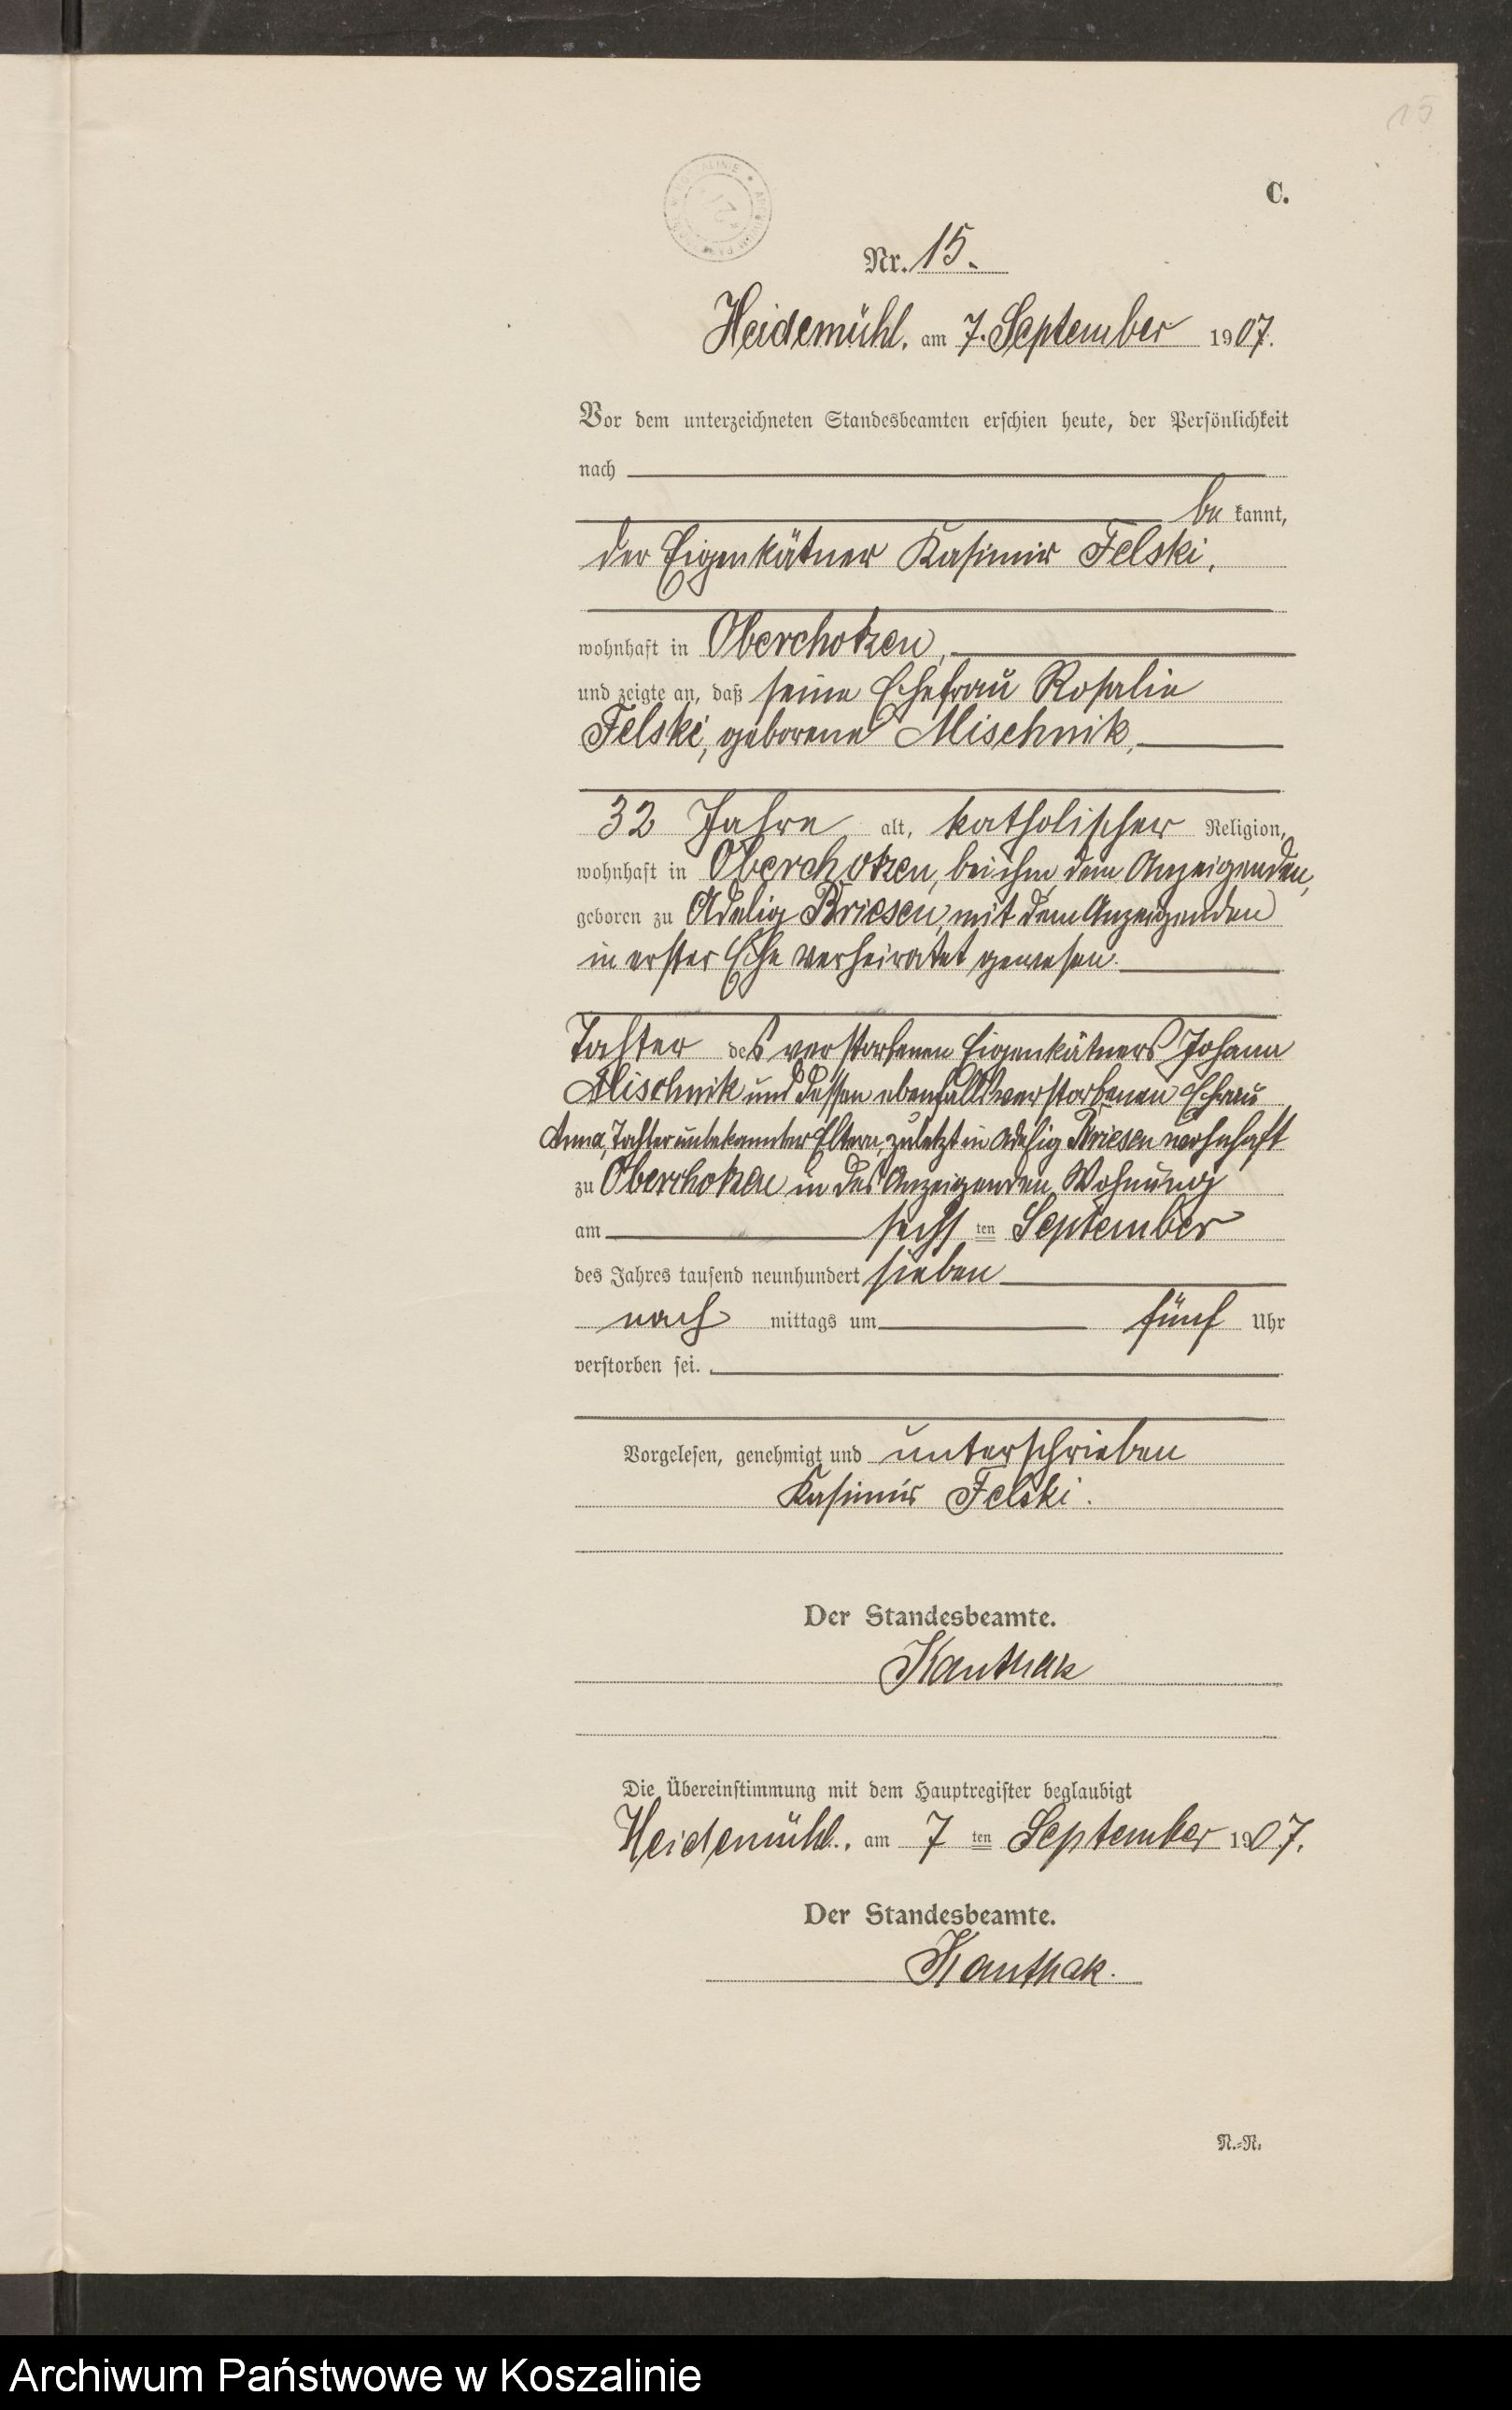 15
C.
Nr. 15.
Heidemühl, am 7. September 1907.
Vor dem unterzeichneten Standesbeamten erschien heute, der Persönlichkeit
nach
be kannt,
der Eigenkätner Kasimir Felski,
wohnhaft in Oberchotzen,
und zeigte an, daß seine Ehefrau Rosalie
Felski, geborene Mischnik,
32 Jahre alt, katholischer Religion,
wohnhaft in Oberchotzen, bei ihm, dem Anzeigenden,
geboren zu Adelig Briesen, mit dem Anzeigenden
in erster Ehe verheiratet gewesen.
Tochter des verstorbenen Eigenkätners Johann
Mischnik und dessen ebenfalls verstorbenen Ehefrau
Anna, Tochter unbekannter Eltern, zuletzt in Adelig Briesen wohnhaft
zu Oberchotzen in des Anzeigenden Wohnung
am sechs ten September
des Jahres tausend neunhundert sieben
nach mittags um fünf Uhr
verstorben sei.
Vorgelesen, genehmigt und unterschrieben
Kasimir Felski.
Der Standesbeamte.
Kanthak
Die Übereinstimmung mit dem Hauptregister beglaubigt
Heidemühl, am 7 ten September 1907.
Der Standesbeamte.
Kanthak.
N.=R.
Archiwum Państwowe w Koszalinie